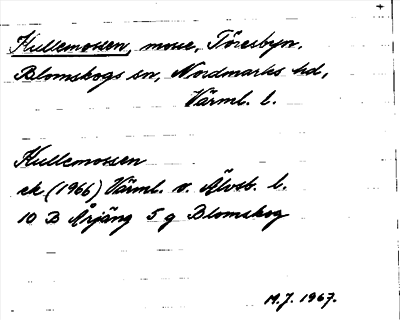 Kullemossen, mosse, Töresbyn,
Blomskogs sn, Nordmarks hd,
Värml. l.
Kullemossen
ek (1966) Värml. o. Älvsb. l.
10 B Årjäng 5 g Blomskog
M.J. 1967.